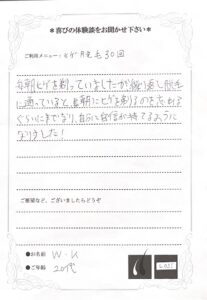 ＊喜びの体験談をお聞かせ下さい＊
ご利用メニュー：ヒゲ脱毛30回
毎朝ヒゲを剃っていましたが繰り返し脱毛
に通っていると、毎朝にヒゲを剃るのを忘れる
ぐらいにまでなり、自分に自信が持てるように
なりました！
ご要望など、ございましたらどうぞ
●お名前 W・K
●ご年齢 20代